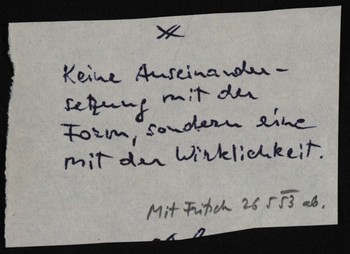 Keine Auseinander-
setzung mit der
Form, sondern eine
mit der Wirklichkeit.
Mit Fritsch 26 5 53 ab.